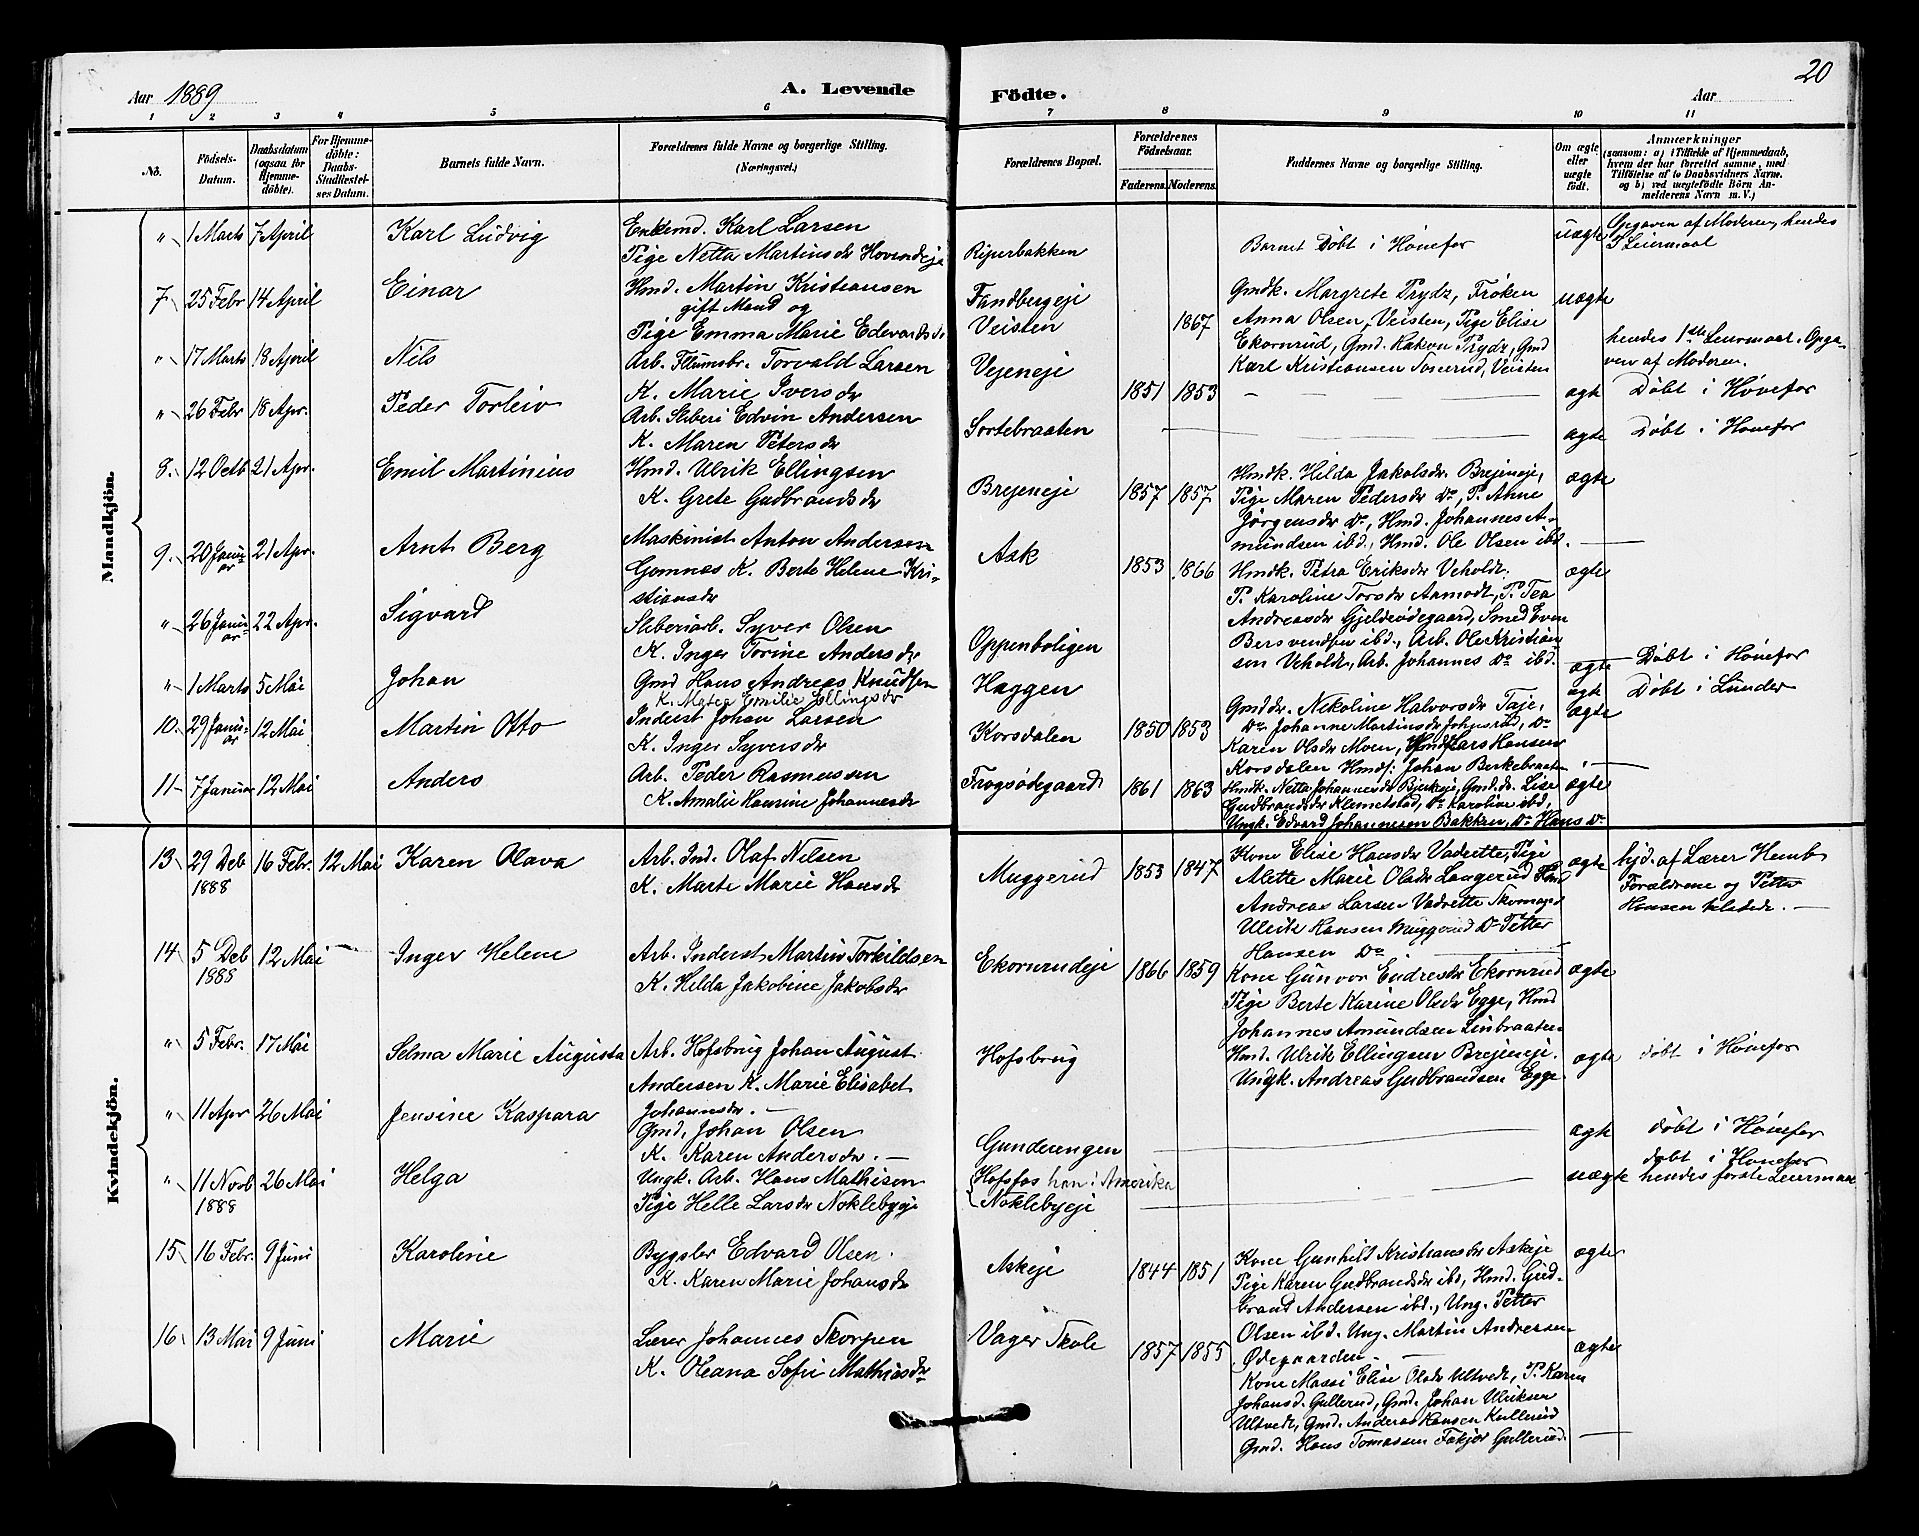 Aar 1889
A. Levende
Födte.
Aar
20
1 2 3 4 5 6 7 8 9 10 11
No.
Födsels-
Datum.
Daabsdatum
(ogsaa for
Hjemme-
döbte).
For Hjemme-
döbte:
Daabs-
Stadfæstel-
ses Datum.
Barnets fulde Navn.
Forældrenes fulde Navne og borgerlige Stilling.
(Næringsvei.)
Forældrenes Bopæl.
Forældrenes
Födselsaar.
Faderens. Moderens.
Faddernes Navne og borgerlige Stilling.
Om ægte
eller
uægte
födt.
Anmærkninger
(saasom: a) i Tilfælde af Hjemmedaab,
hvem der har forrettet samme, med
Tilföielse af to Daabsvidners Navne.
og b) ved uægtefödte Börn An-
melderens Navn m. V.)
Mandkjön.
" 1 Marts 7 April Karl Ludvig
Enkemd. Karl Larsen
Pige Netta Martinsdr Hovindeje
Riperbakken
Barnet Døbt i Hønefos
uægte
Opgaven af Moderen, hendes
Leiermaal
7 25 Febr 14 April Einar
Hmd. Martin Kristiansen
gift Mand og
Pige Emma Marie Edvardsdr
Fandbergeje
Veisten
1867
Gmdk. Margrete Prydz, Frøken
Anna Olsen, Veisten, Pige Elise
Ekornrud, Gmd. Hakon Prydz, Gmd
Karl Kristiansen Veisten
uægte
hendes 1ste Leiermaal. Opga-
ven af Moderen.
" 17 Marts 18 April Nils
Arb. Torvald Larsen
K. Marie Iversdr
Vejeneje
1851 1853
ægte Døbt i Hønefos
" 26 Febr 18 Apr. Peder Torleiv
Arb. Sliberi Edvin Andersen
K. Maren Petersdr
Sortebraaten
ægte Døbt i Hønefos
8. 12 Octb 21 Apr. Emil Martinius
Hmd. Ulrik Ellingsen
K. Grete Gudbrandsdr
Brejeneje
1857 1857
Hmdk. Hilda Jakobsdr Brejeneje,
Pige Maren Pedersdr Do, P. Anne
Jørgensdr Do, Hmd. Johannes A-
mundsen ibd., Hmd. Ole Olsen ibd.
ægte
9. 20 Janu-
ar 21 Apr. Arnt Berg
Maskinist Anton Andersen
Gomnæs K. Berte Helene Kri-
stiansdr
Ask
1853 1866
Hmdk. Petra Eriksdr Veholdt.
P. Karoline Torsdr Aamodt, P. Tea
Andreasdr Gjeldeødegaard, Smed Even
Bersvendsen ibd., Arb. Ole Kristian-
sen Veholdt, Arb. Johannes Do ibd.
ægte
" 26 Janu-
ar 22 Apr. Sigvard
Sliberiarb. Syver Olsen
K. Inger Torine Andersdr
Oppenboligen
ægte Døbt i Hønefos
" 1 Marts 5 Mai Johan
Gmd Hans Andreas Knudsen
K. Matea Emilie Ellingsdr
Haggen
ægte Døbt i Lunder
10. 29 Janu-
ar 12 Mai Martin Otto
Inderst Johan Larsen
K. Inger Syversdr
Korsdalen
1850 1853
Gmddr. Nekoline Halvorsdr Taje,
Do Johanne Martinsdr Johnsrud, Do
Karen Olsdr Moen, Hmd Lars Hansen
Korsdalen Hmdf. Johan Berkebraaten
ægte
11 7 Januar 12 Mai Anders
Arb. Peder Rasmussen
K. Amalie Hansine Johannesdr
Frogsødegaard
1861 1863
Hmdk. Netta Johannesdr Bjerkeje, Gmd.dr. Lise
Gudbrandsdr Klemetstad, Do Karoline ibd,
Ungk. Edvard Johannesen Bakken, Do Hans Do
ægte
Kvindekjön.
13 29 Deb
1888 16 Febr. 12 Mai Karen Olava
Arb. Ind. Olaf Nilsen
K. Marte Marie Hansdr
Muggerud
1853 1847
Kone Elise Hansdr Vadrette, Pige
Alette Marie Olsdr Langerud Hmd
Andreas Larsen Vadrette Skomager
Ulrik Hansen Muggerud Do Petter
Hansen Do
ægte
hjd. af Lærer Hemb
Forældrene og Petter
Hansen tilstede.
14 5 Deb
1888 12 Mai Inger Helene
Arb. Inderst Martin Torkildsen
K. Hilda Jakobine Jakobsdr
Ekornrudeje
1866 1859
Kone Gunvor Endresdr Ekornrud
Pige Berte Karine Olsdr Egge, Hmd
Johannes Amundsen Linbraaten
Hmd. Ulrik Ellingsen Brejeneje.
Ungk. Andreas Gudbrandsen Egge
ægte
" 5 Febr. 17 Mai Selma Marie Augusta
Arb. Hofsbrug Johan August
Andersen K. Marie Elisabet
Johannsdr.
Hofsbrug
ægte døbt i Hønefos
" 11 Apr 26 Mai Jensine Kaspara
Gmd. Johan Olsen
K. Karen Andersdr.
Gunderengen
ægte døbt i Hønefos
" 11 Novb
1888 26 Mai Helga
Ungk. Arb. Hans Mathisen
Pige Helle Larsdr Noklebyeje
Hofsfos han i Amerika
Noklebyeje
uægte
døbt i Hønefos
hendes første Leiermaal
15 16 Febr. 9 Juni Karoline
Bygsler Edvard Olsen.
K. Karen Marie Johansdr
Askeje
1844 1851
Kone Gunhild Kristiansdr Askeje
Pige Karen Gudbrandsdr ibd, Hmd. Gud-
brand Andersen ibd., Ung. Petter
Olsen ibd. Ung. Martin Andersen
Ødegaarden
ægte
16 13 Mai 9 Juni Marie
Lærer Johannes Skorpen
K. Oleana Sofie Mathiasdr
Vager Skole
1857 1855
Kone Massi Elise Olsdr Ultvedt, P. Karen
Johansd. Gullerud, Gmd. Johan Ulriksen
Ultvedt, Gmd. Anders Hansen Kullerud
Gmd. Hans Tomassen Gullerud.
ægte